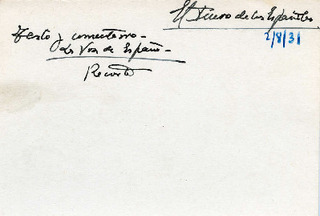 El Fuero de los Españoles
2/8/31
Texto y comentario -
La Voz de España -
Recorte